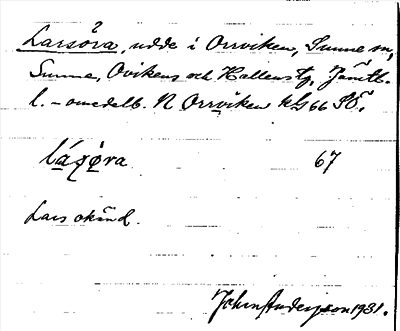 Larsöra, udde i Orrviken, Sunne sn,
Sunne, Ovikens och Hallens tg, Jämtl.
l. – omedelb. N Orrviken kbl 66 SÖ.
67
Lars okänd.
John Andersson 1931.